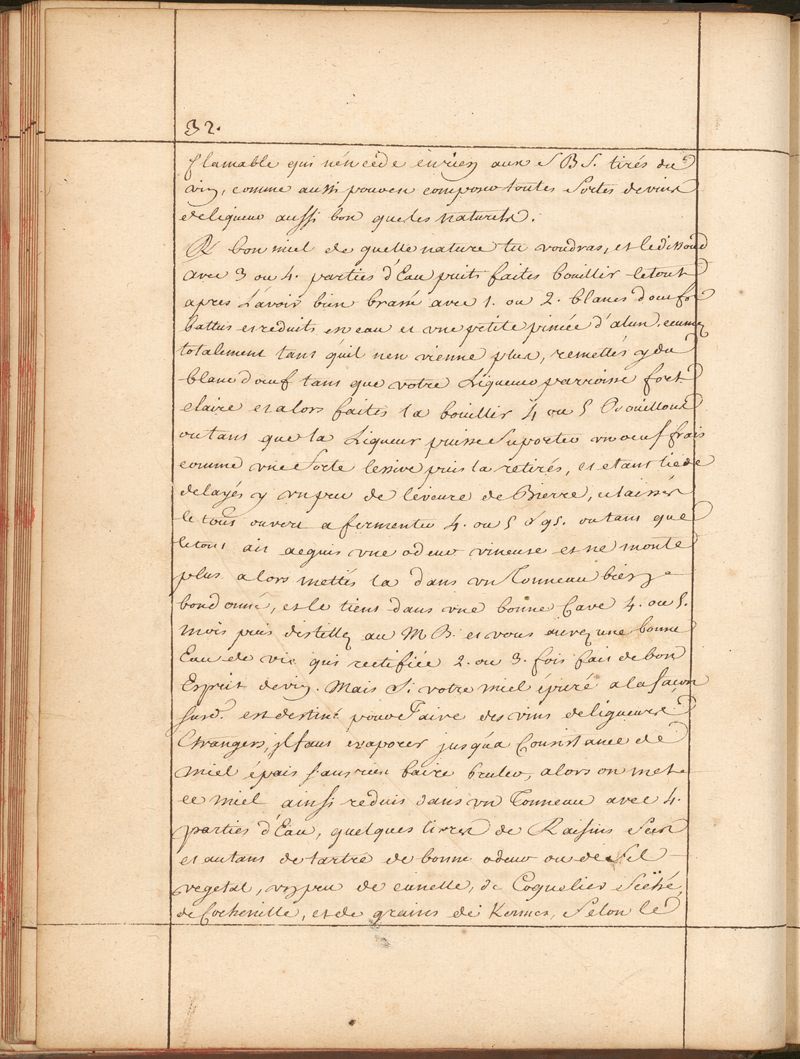 32.
flamable qui n'en cède en rien aux S B S. tirés du
vin, comme aussi pouvoir composer toutes Sortes de vins
de liqueur aussi bon que les naturels.
R bon miel de quelle nature tu voudras, et le dissoud
avec 3 ou 4. parties d'Eau puits faites bouillir le tout
apres L'avoir bien brassé avec 1. ou 2. blancs d'oeufs
battus et reduits en eau et vne petite pincée d'alun. ecumez
totalement tant qu'il n'en vienne plus, remettés y du
blanc d'oeuf tant que votre Liqueur parroisse fort
claire et alors faites la bouillir 4 ou 5 Bouillons
ou tant que la Liqueur puisse Suporter vn oeuf frais
comme vne forte lessive puis la retirés, et etant tiede
delayés y vn peu de leveure de Bierre, et laissés
le tout ouvert a fermenter 4. ou 5 ou tant que
le tout ait acquis vne odeur vineuse et ne monte
plus alors mettés la dans vn Tonneau bien
bondonné, et le tient dans vne bonne Cave 4. ou 5.
mois puis distillez au M B. et vous aurez une bonne
Eau de vie qui rectifiée 2. ou 3. fois fait de bon
Esprit de vin. Mais Si votre miel épuré a la façon
susd.e est destiné pour Faire des vins de liqueurs
Etrangers, il faut evaporer jusqu'a Consistance de
miel épais sans rien faire bruler, alors on met
ce miel ainsi reduit dans vn Tonneau avec 4.
parties d'Eau, quelques livres de Raisins Secs
et autant de tartre de bonne odeur ou de Sel
vegetal, vn peu de canelle, de Coquelico Séché,
de Cochenille, et de grains de Kermes, Selon le